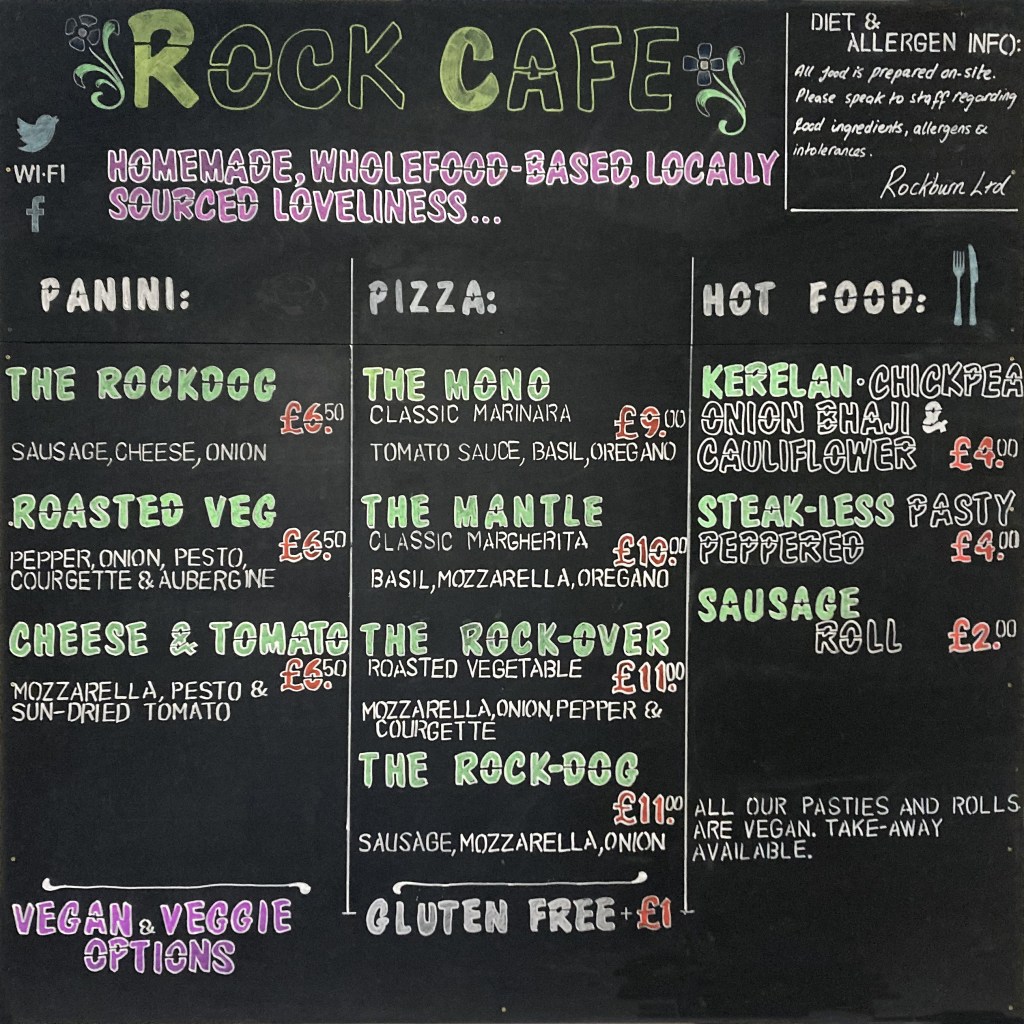 ROCK CAFE
DIET &
ALLERGEN INFO:
All food is prepared on-site.
Please speak to staff regarding
food ingredients, allergens &
intolerances.
Rockburn Ltd
WI·FI
f
HOMEMADE, WHOLEFOOD-BASED, LOCALLY
SOURCED LOVELINESS...
PANINI:
THE ROCKDOG
£6.50
SAUSAGE, CHEESE, ONION
ROASTED VEG
£6.50
PEPPER, ONION, PESTO,
COURGETTE & AUBERGINE
CHEESE & TOMATO
£6.50
MOZZARELLA, PESTO &
SUN-DRIED TOMATO
VEGAN & VEGGIE
OPTIONS
PIZZA:
THE MONO
CLASSIC MARINARA
£9.00
TOMATO SAUCE, BASIL, OREGANO
THE MANTLE
CLASSIC MARGHERITA
£10.00
BASIL, MOZZARELLA, OREGANO
THE ROCK-OVER
ROASTED VEGETABLE
£11.00
MOZZARELLA, ONION, PEPPER &
COURGETTE
THE ROCK-DOG
£11.00
SAUSAGE, MOZZARELLA, ONION
GLUTEN FREE + £1
HOT FOOD:
KERELAN · CHICKPEA
ONION BHAJI &
CAULIFLOWER £4.00
STEAK-LESS PASTY
PEPPERED £4.00
SAUSAGE
ROLL £2.00
ALL OUR PASTIES AND ROLLS
ARE VEGAN. TAKE-AWAY
AVAILABLE.